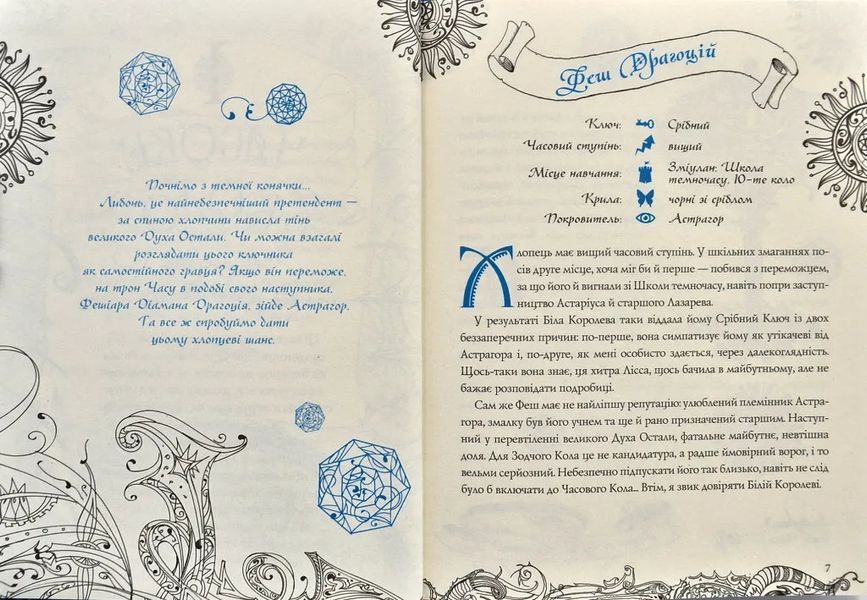 Почнімо з темної конячки...
Либонь, це найнебезпечніший претендент —
за спиною хлопчини нависла тінь
великого Духа Остали. Чи можна взагалі
розглядати цього ключника
як самостійного гравця? Якщо він переможе,
на трон Часу в подобі свого наступника,
Фешіара Діамана Драгоція, зійде Астрагор.
Та все ж спробуймо дати
цьому хлопцеві шанс.
Феш Драгоцій
Ключ: Срібний
Часовий ступінь: вищий
Місце навчання: Зміулан: Школа
темночасу, 10-те коло
Крила: чорні зі сріблом
Покровитель: Астрагор
Хлопець має вищий часовий ступінь. У шкільних змаганнях по-
сів друге місце, хоча міг би й перше — побився з переможцем,
за що його й вигнали зі Школи темночасу, навіть попри заступ-
ництво Астаріуса й старшого Лазарева.
У результаті Біла Королева таки віддала йому Срібний Ключ із двох
беззаперечних причин: по-перше, вона симпатизує йому як утікачеві від
Астрагора і, по-друге, як мені особисто здається, через далекоглядність.
Щось-таки вона знає, ця хитра Лісса, щось бачила в майбутньому, але не
бажає розповідати подробиці.
Сам же Феш має не найліпшу репутацію: улюблений племінник Астра-
гора, змалку був його учнем та ще й рано призначений старшим. Наступ-
ний у перевтіленні великого Духа Остали, фатальне майбутнє, невтішна
доля. Для Зодчого Кола це не кандидатура, а радше ймовірний ворог, і то
вельми серйозний. Небезпечно підпускати його так близько, навіть не слід
було б включати до Часового Кола... Втім, я звик довіряти Білій Королеві.
7